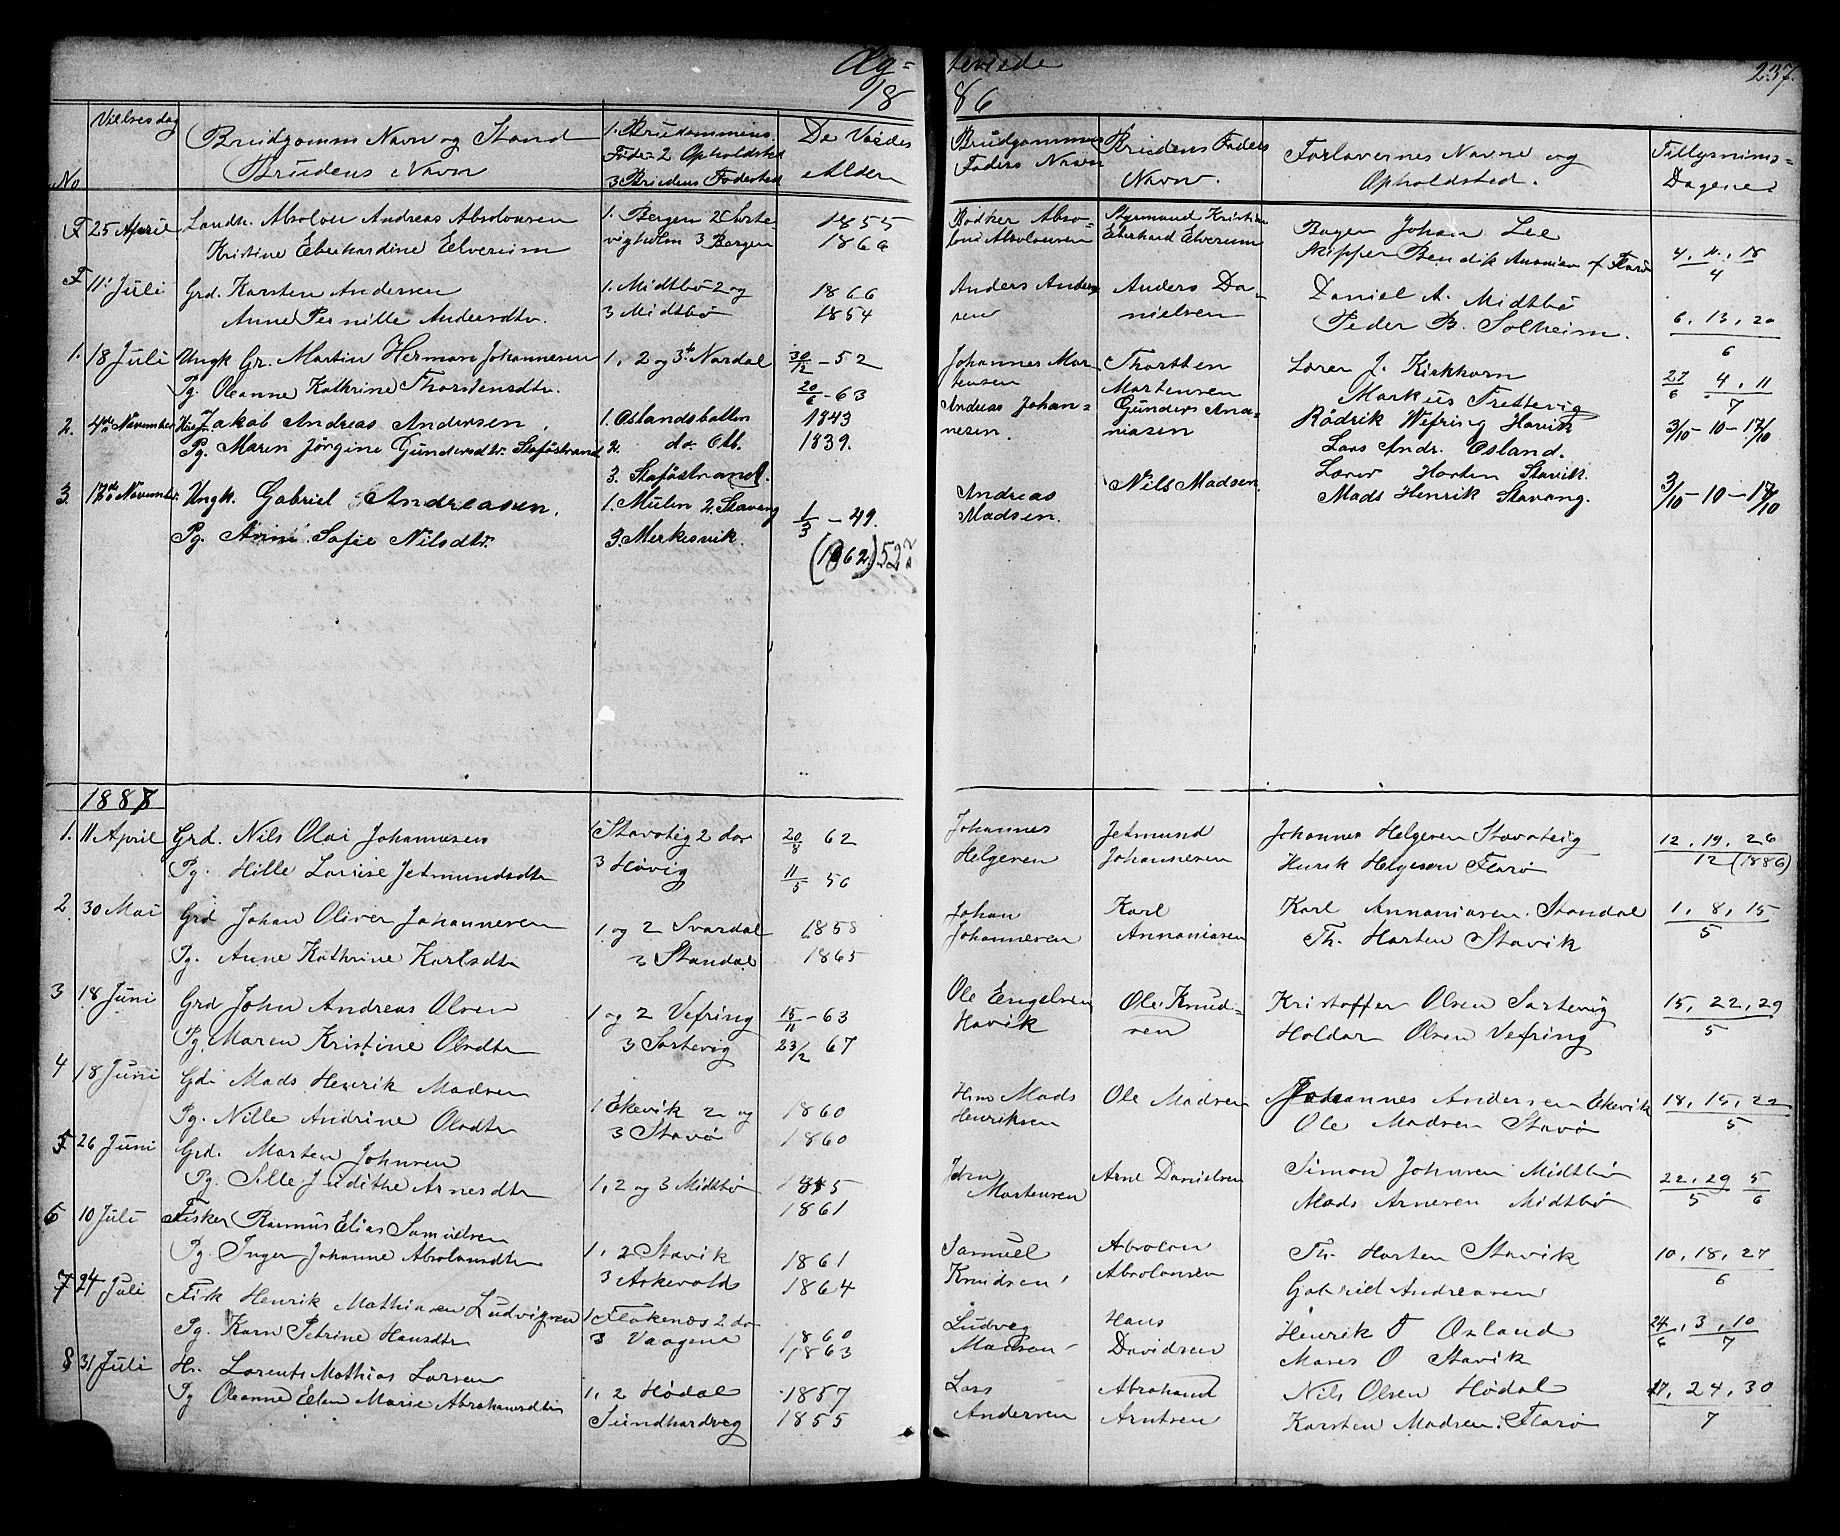 Æg= teviede 237.
18 86
No
Vielsesdag
Brudgomms Navn og Stand
Brudens Navn
1. Brudgommens
Føde- 2 Opholdsted
3 Brudens Fødested
De Viedes
Alder
Brudgommens
Faders Navn
Brudens Faders
Navn.
Forlovernes Navne og
Opholdsted.
Tillysnings-
Dagene
F 25 April Landh. Absolon Andreas Absolonsen 1. Bergen 1855 Bødker Abso- Styrmand Kristian Bager Johan Lee
Kristine Eberhardine Elverum 3 Bergen 1866 lon Absolonsen Eberhard Elverum Skipper Bendik Ananias af Florø 4, 11, 18
4
F 11' Juli Grd. Karsten Andersen 1. Midtbø 2 og 1866 Anders Ander Anders Da- Daniel A. Midtbø
Anne Pernille Andersdtr. 3 Midtbø 1854 sen nielsen Peder B. Solheim. 6, 13, 20
6
1. 18 Juli Ungk Gr. Martin Herman Johannesen 1, 2 og 3 Nordal 30/12 - 52 Johannes Mar Thorsten Lærer J. Kirkhorn
Pg. Oleanne Kathrine Thorstensdtr. 20/6 - 63 tensen Martensen Markus Trettevig 27/6 4, 11
7
2. 4de November Jakob Andreas Andersen, 1. Oslandsbotten 1843 Andreas Johan= Gunders Ana- Rødrik Vefring Havik
Pg. Maren Jørgine Gundersdtr. Staføstrand 2. do. 1839. nesen. niasen Lars Andr. Osland. 3/10 - 10 - 17/10
3. Staføstrand.
3. November. Ungk. Gabriel Andreasen. 1. Mulen 2. Stavang 1/3 - 49. Andreas Nils Madsen. Lærer Horten Stavik.
Pg. Anne Sofie Nilsdtr. 3. Merkesvik. (1862) 52? Madsen. Mads Henrik Stavang. 3/10 - 10 - 17/10
1887
1. 11 April Grd. Nils Olai Johannesen 1 Stavoteig 2 do 20/8 62 Johannes Jetmund Johannes Helgesen Stavoteig 12, 19, 26
Pg. Hille Lovise Jetmundsdtr 3 Høvig 11/5 56 Helgesen Johannesen Henrik Helgeson Florø 12 (1886)
2 30 Mai Grd Johan Oliver Johannesen 1. og 2 Svardal 1858 Johan Karl Karl Annaniasen Standal 1, 8, 15
Pg. Anne Kathrine Karlsdtr 3 Standal 1865 Johannesen Annaniasen Th. Horten Stavik 5
3 18 Juni Grd John Andreas Olsen 1 og 2 Vefring 15/11 - 63 Ole Engelsen Ole Knud= Kristoffer Olsen Sortevig 15, 22, 29
Pg. Maren Kristine Olsdtr 3 Sortevig 23/2 67 Havik sen Holdor Olsen Vefring 5
4 18 Juni Gdr Mads Henrik Madsen 1 Ekevik 2 og 1860 Hsm Mads Ole Madsen Johannes Andersen Ekevik 18, 15, 22
Pg. Nille Andrine Olsdtr 3 Stavø 1860 Henriksen Ole Madsen Stavø 5
5 26 Juni Grd. Morten Johnsen John Arne Danielsen Simon Johnsen Midtbø 22, 29 5
Pg. Sille Judithe Arnesdtr 1, 2 og 3 Midtbø 1861 Mortensen Mads Arnesen Midtbø 5 6
6 10 Juli Fisker Rasmus Elias Samuelsen 1, 2 Stavik 1861 Samuel Absolon Th. Horten Stavik 10, 18, 27
Pg. Inger Johanne Absolonsdtr 3 Askevolds 1864 Knudsen Absolonsen Gabriel Andreasen 6
7 24 Juli Fisk Henrik Mathiasen Ludvigsen 1 Flokenæs 2 do 1860 Ludvig Hans Henrik O Osland 24/6, 3, 10
Pg. Karn Petrine Hansdtr 3 Vaagene 1863 Madsen Davidsen O Stavik 7
8 31 Juli Hr. Lorents Mathias Larsen 1, 2 Hødal 1857 Lars Abraham Nils Olsen Hødal 17, 24, 30
Pg Oleanne Elen Marie Abrahamsdtr Sundhardveg 1855 Andersen Arntsen Karsten Madsen. Florø 7